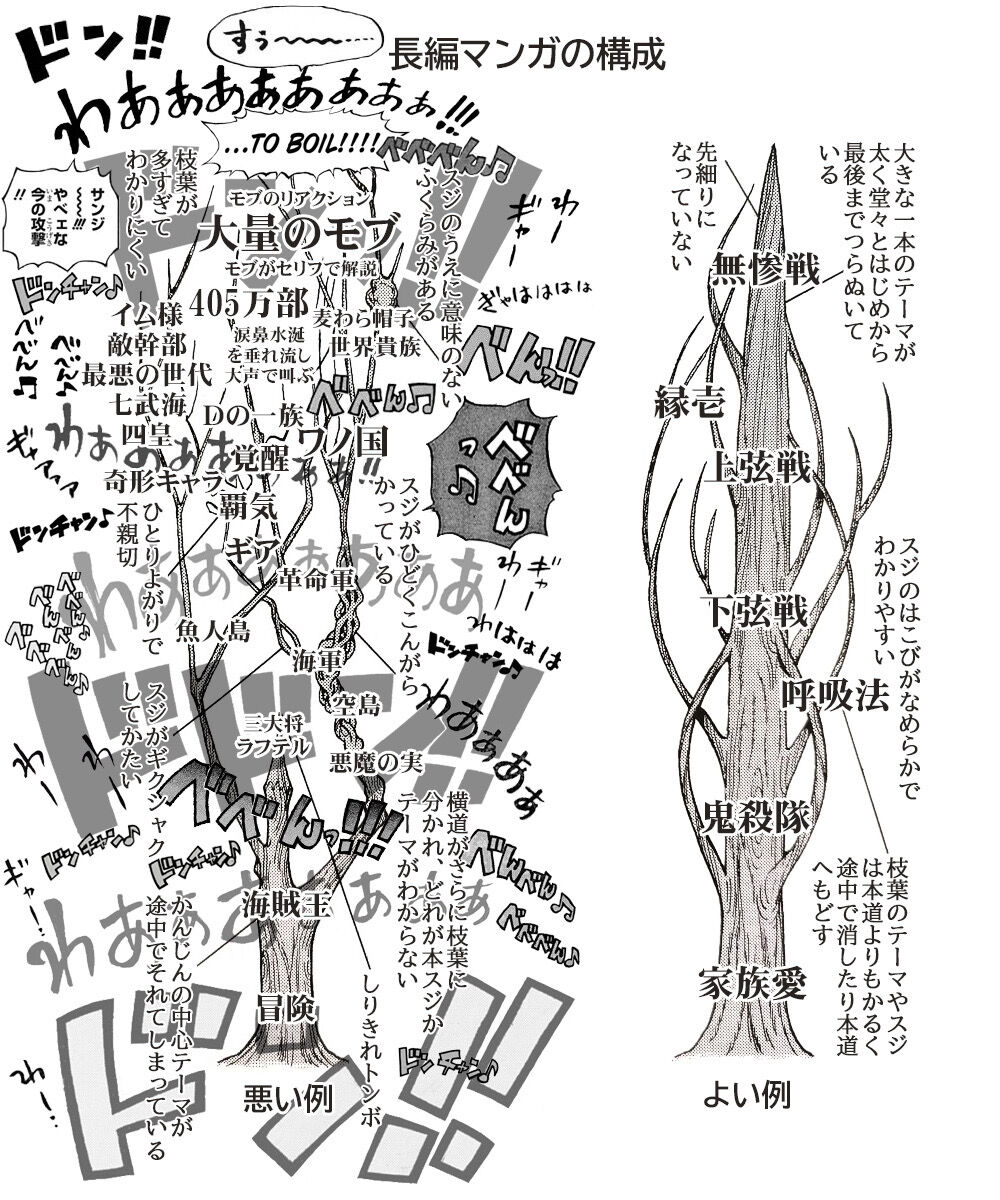 長編マンガの構成
ドン!!
すぅ〜〜〜……
わあぁぁぁぁぁぁぁぁ!!!
...TO BOIL!!!!
べべべん♫
サンジ
〜〜〜!!!
やべェな
今の攻撃
いま こうげき
!!
枝葉が
多すぎて
わかりにくい
ドン!!
モブのリアクション
大量のモブ
モブがセリフで解説
405万部
涙鼻水涎
を垂れ流し
大声で叫ぶ
麦わら帽子
世界貴族
スジのうえに意味のない
ふくらみがある
わー
ぎゃー
ぎゃはははは
べん!!
ドンチャン♪
イム様
敵幹部
最悪の世代
七武海
四皇
奇形キャラ
Dの一族
覚醒
覇気
ギア
ワノ国
べべん♫
べべん
っ♫
わあぁぁぁぁぁぁ!!
ギャアァァ
ドンチャン♪
ひとりよがりで
不親切
スジがひどくこんがら
かっている
革命軍
魚人島
海軍
空島
三大将
ラフテル
悪魔の実
わあぁぁぁぁぁぁぁ
ギャー
わー
わははは
ドンチャン♫
わあぁぁぁ
スジがギクシャク
してかたい
わ
わ
べべんっ!!!
横道がさらに枝葉に
分かれ、どれが本スジか
テーマがわからない
ドンチャン♪
ドンチャン♪
ギャー…
べんべん♪
べべべん♪
海賊王
冒険
わあぁぁぁぁぁぁ
かんじんの中心テーマが
途中でそれてしまっている
しりきれトンボ
ドンチャン♫
わー…
ドン!!
悪い例
大きな一本のテーマが
太く堂々とはじめから
最後までつらぬいて
いる
先細りに
なっていない
無惨戦
縁壱
上弦戦
スジのはこびがなめらかで
わかりやすい
下弦戦
呼吸法
鬼殺隊
枝葉のテーマやスジ
は本道よりもかるく
途中で消したり本道
へもどす
家族愛
よい例